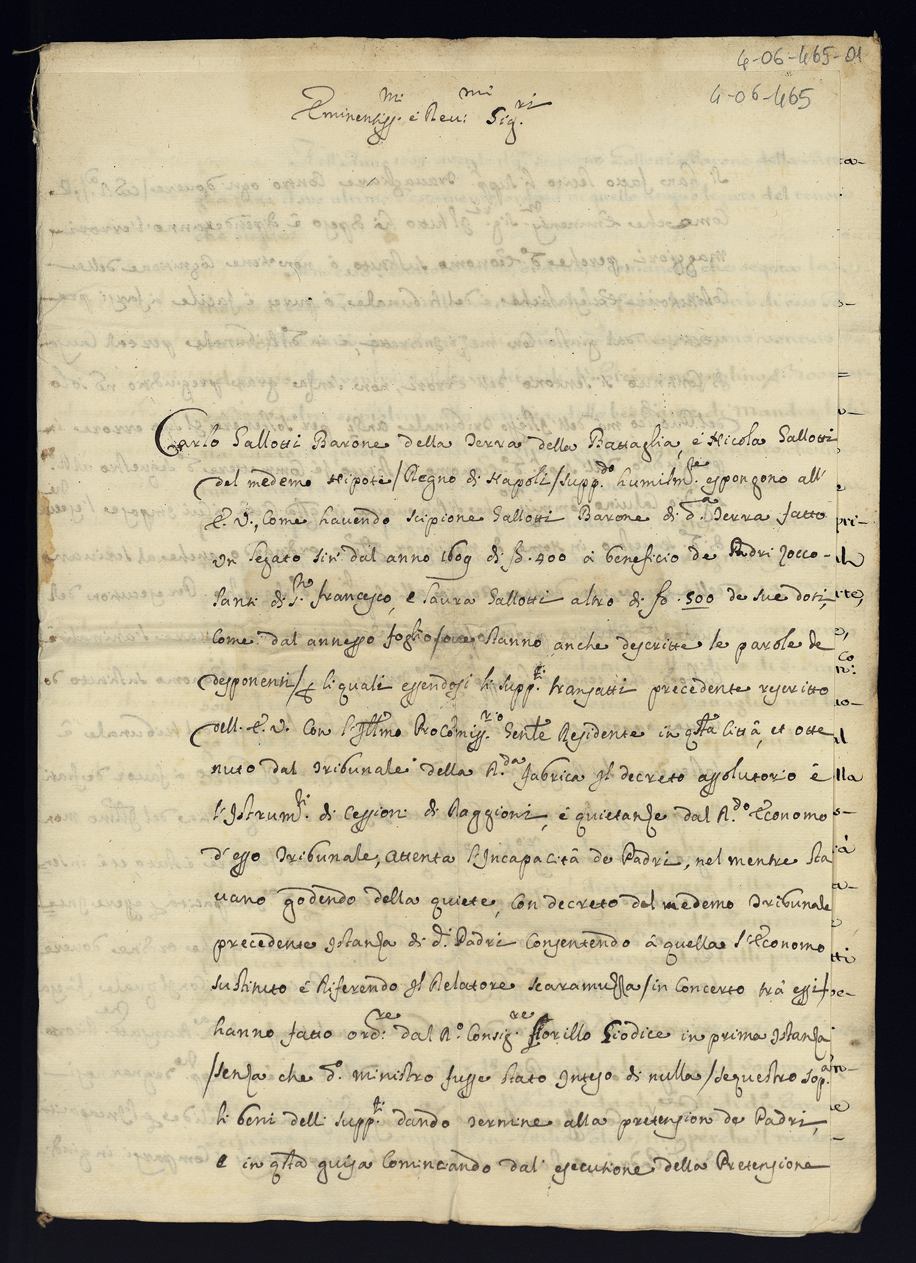 4-06-465-01
4-06-465
Eminentiss.mi e Reu:mi Sig.ri
Carlo Gallotti Barone della Terra della Battaglia, é Nicola Gallotti
del medemo Nipote /Regno di Napoli/ supp.do humilm.te espongono all'
E. V., Come havendo Scipione Gallotti Barone di d.a Terra fatto
un legato sin' dal anno 1609 di 400 á beneficio de Padri Zocco-
lanti di S. francesco, e Laura Gallotti altro di 500 de sue doti,
Come dal annesso foglio /ove stanno anche descritte le parole de
desponenti/ li quali essendosi li supp.ti transatti precedente rescritto
dell. E. V. Con l'Illmo ProComiss.rio Gen̄le Residente in qsta Cittâ, et otte
nuto dal Tribunale della R.da fabrica Il decreto assolutorio é
l'Istrum.ti di Cessioni di Raggioni, é quietanze dal R.do Economo
d'esso Tribunale, attenta l'Incapacitâ de Padri, nel mentre sta
uano godendo della quiete, Con decreto del medemo Tribunale
precedente Istanza di d.i Padri Consentendo â quella l'Economo
sustituto é Riferendo Il Relatore Scaramuzza /in Concerto trá essi/
hanno fatto ord:re dal R.o Consig.re Fiorillo Giodice in prima Istanza
/senza che d.o ministro fusse stato Inteso di nulla/ sequestro sop.a
li beni delli supp.ti dando Termine alla pretension de Padri,
e in qsta guisa Cominciando dal' esecutione della Pretensione